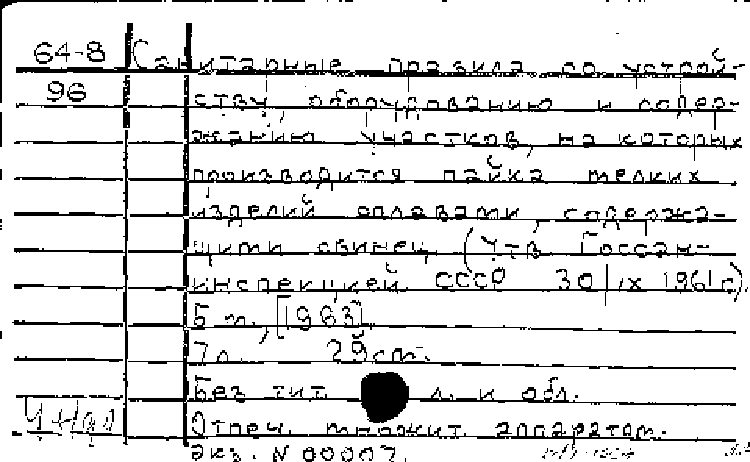 64-8 Санитарные правила по устрой-
96 ству, оборудованию и содер-
жанию участков, на которых
производится пайка мелких
изделий сплавами, содержа-
щими свинец (Утв. Госсан-
инспекцией СССР 30/IX 1961 г).
Б м., [1963].
7 л. 29 см.
Без тит. л. и обл.
Отпеч. множит. аппаратом.
Экз. N 00007.